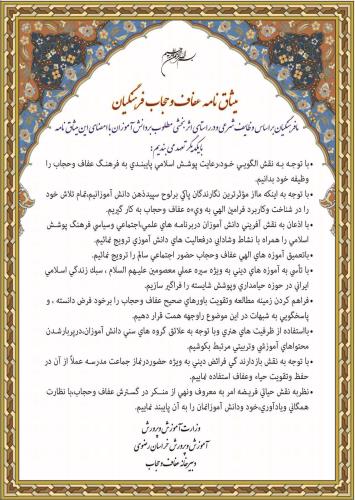 بسم الله الرحمن الرحیم
میثاق نامه عفاف و حجاب فرهنگیان
ما فرهنگیان بر اساس وظایف شرعی و در راستای اثربخشی مطلوب بر دانش آموزان با امضای این میثاق نامه
با یکدیگر تعهد می بندیم:
•با توجه به نقش الگویی خود،رعایت پوشش اسلامی پایبندی به فرهنگ عفاف وحجاب را
وظیفه خود بدانیم.
•با توجه به اینکه مااز مؤثرترین نگارندگان پاکی برلوح سپیدذهن دانش آموزانیم،تمام تلاش خود
را در شناخت وکاربرد فرامین الهی به ویژه عفاف وحجاب به کار گیریم.
•با اذعان به نقش آفرینی دانش آموزان دربرنامه های علمی،اجتماعی وسیاسی فرهنگ پوشش
اسلامی را همراه با نشاط وشادابی درفعالیت های دانش آموزی ترویج نمائیم.
•باتعمیق آموزه های الهی عفاف وحجاب حضور اجتماعی سالم را ترویج نمائیم.
•با تأسی به آموزه های دینی به ویژه سیره عملی معصومین علیهم السلام ، سبک زندگی اسلامی
ایرانی در حوزه حیامداری وپوشش شایسته را فراگیر سازیم.
•فراهم کردن زمینه مطالعه وتقویت باورهای صحیح عفاف وحجاب را برخود فرض دانسته ، و
پاسخگویی به شبهات در این موضوع راوجهه همت قرار دهیم.
•بااستفاده از ظرفیت های هنری وبا توجه به علائق گروه های سنی دانش آموزان،درپربارشدن
محتواهای آموزشی وتربیتی مرتبط بکوشیم.
•با توجه به نقش بازدارندگی فرائض دینی به ویژه حضوردرنماز جماعت مدرسه عملاً از آن در
حفظ وتقویت حیاء وعفاف استفاده نماییم.
•نظربه نقش حیاتی فریضه امر به معروف ونهی از منکر در گسترش عفاف وحجاب،با نظارت
همگانی ویادآوری،خود ودانش آموزانمان را به آن پایبند نماییم.
وزارت آموزش و پرورش
آموزش و پرورش خراسان رضوی
دبیرخانه عفاف و حجاب